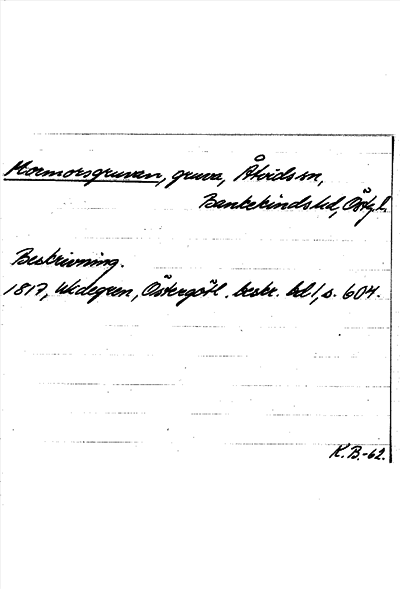 Mormorsgruvan, gruva, Åtvids sn,
Bankekinds hd, Östgl.
Beskrivning.
1817, Widegren, Östergötl. beskr. bd 1, s. 604.
K.B.-62.